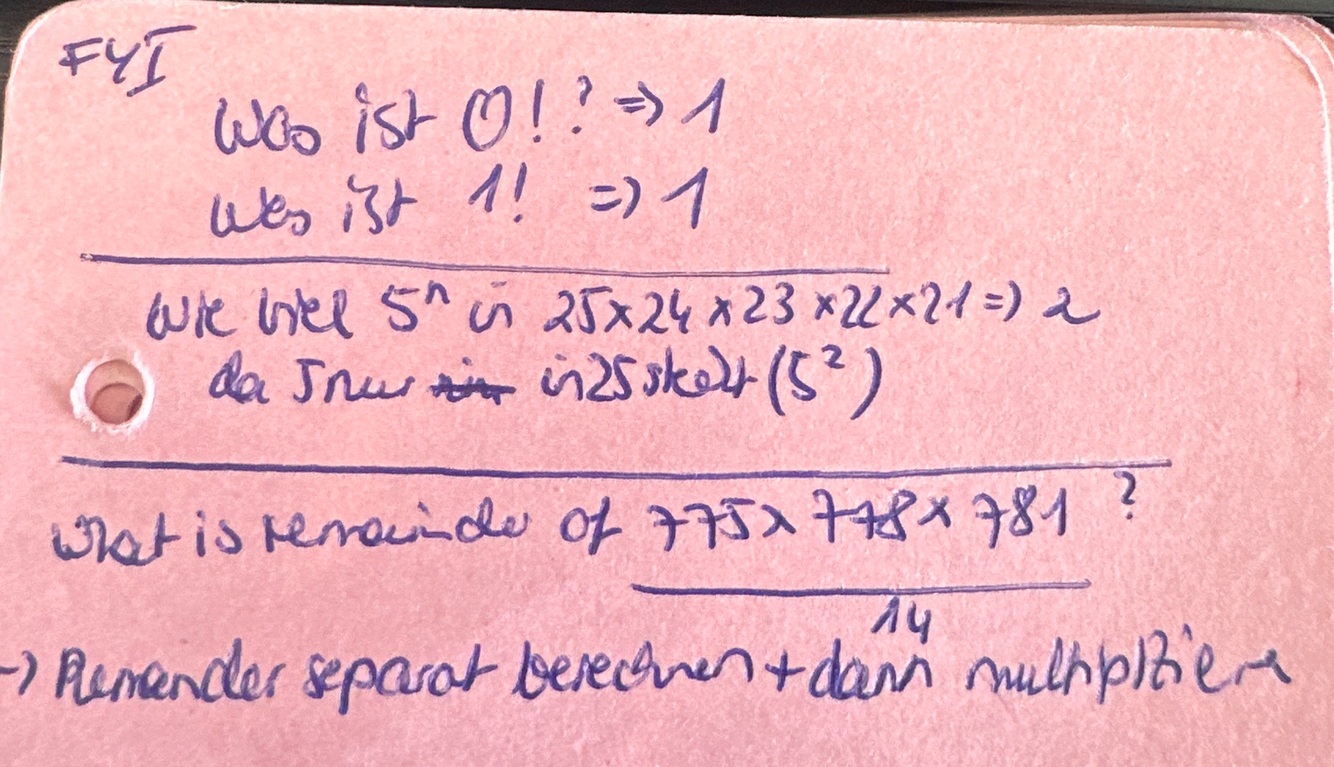 FYI
Was ist 0!? => 1
Was ist 1! => 1
Wie viel 5ⁿ in 25x24x23x22x21 => 2
da 5 nur in 25 steckt (5²)
What is remainder of 775x778x781 ?
14
-> Remainder separat berechnen + dann multipliziere